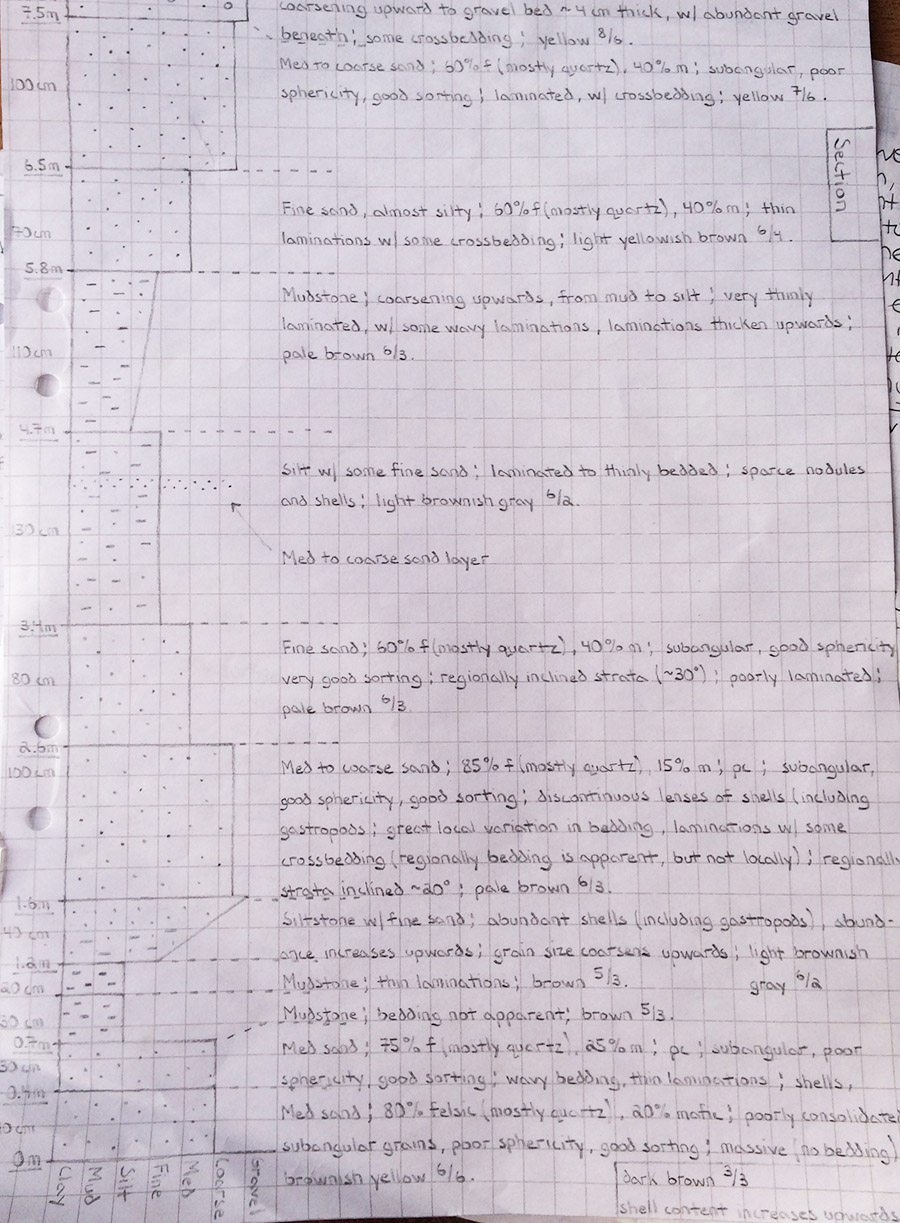 7.5m
coarsening upward to gravel bed ~ 4 cm thick, w/ abundant gravel
beneath; some crossbedding; yellow 8/6.
Med to coarse sand; 60% f (mostly quartz), 40% m; subangular, poor
100cm
sphericity, good sorting; laminated, w/ crossbedding; yellow 7/6.
Section
6.5m
Fine sand, almost silty; 60% f (mostly quartz), 40% m; thin
70cm
laminations w/ some crossbedding; light yellowish brown 6/4.
5.8m
Mudstone; coarsening upwards, from mud to silt; very thinly
laminated, w/ some wavy laminations, laminations thicken upwards;
110cm
pale brown 6/3.
4.7m
Silt w/ some fine sand; laminated to thinly bedded; sparce nodules
and shells; light brownish gray 6/2.
130cm
Med to coarse sand layer
3.4m
Fine sand; 60% f (mostly quartz), 40% m; subangular, good sphericity
80cm
very good sorting; regionally inclined strata (~30°); poorly laminated;
pale brown 6/3
2.6m
100cm
Med to coarse sand; 85% f (mostly quartz), 15% m; pc; subangular,
good sphericity, good sorting; discontinuous lenses of shells (including
gastropods; great local variation in bedding, laminations w/ some
crossbedding (regionally bedding is apparent, but not locally); regionally
strata inclined ~20°; pale brown 6/3.
1.6m
Siltstone w/ fine sand; abundant shells (including gastropods), abund-
40 cm
ance increases upwards; grain size coarsens upwards; light brownish
gray 6/2
1.2m
20 cm
Mudstone; thin laminations; brown 5/3.
30 cm
Mudstone; bedding not apparent; brown 5/3.
0.7m
Med sand; 75% f (mostly quartz), 25% m; pc; subangular, poor
30 cm
sphericity, good sorting; wavy bedding, thin laminations; shells,
0.4m
Med sand; 80% felsic (mostly quartz), 20% mafic; poorly consolidated
subangular grains, poor sphericity, good sorting; massive (no bedding)
0m
brownish yellow 6/6.
dark brown 3/3
shell content increases upwards
Clay
Mud
Silt
Fine
Med
Coarse
Gravel